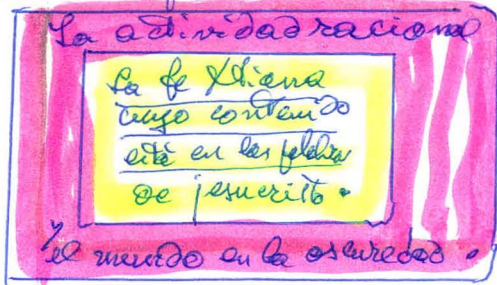 La actividad racional
La fe Xtiana
cuyo contenido
está en las palabras
de jesucristo.
el mundo en la oscuridad.